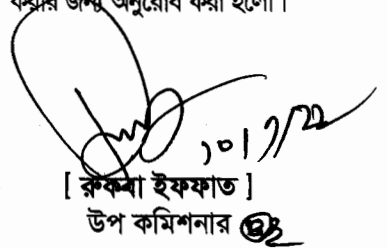 করার জন্য অনুরোধ করা হলো।
[ রুকবা ইফফাত ]
উপ কমিশনার